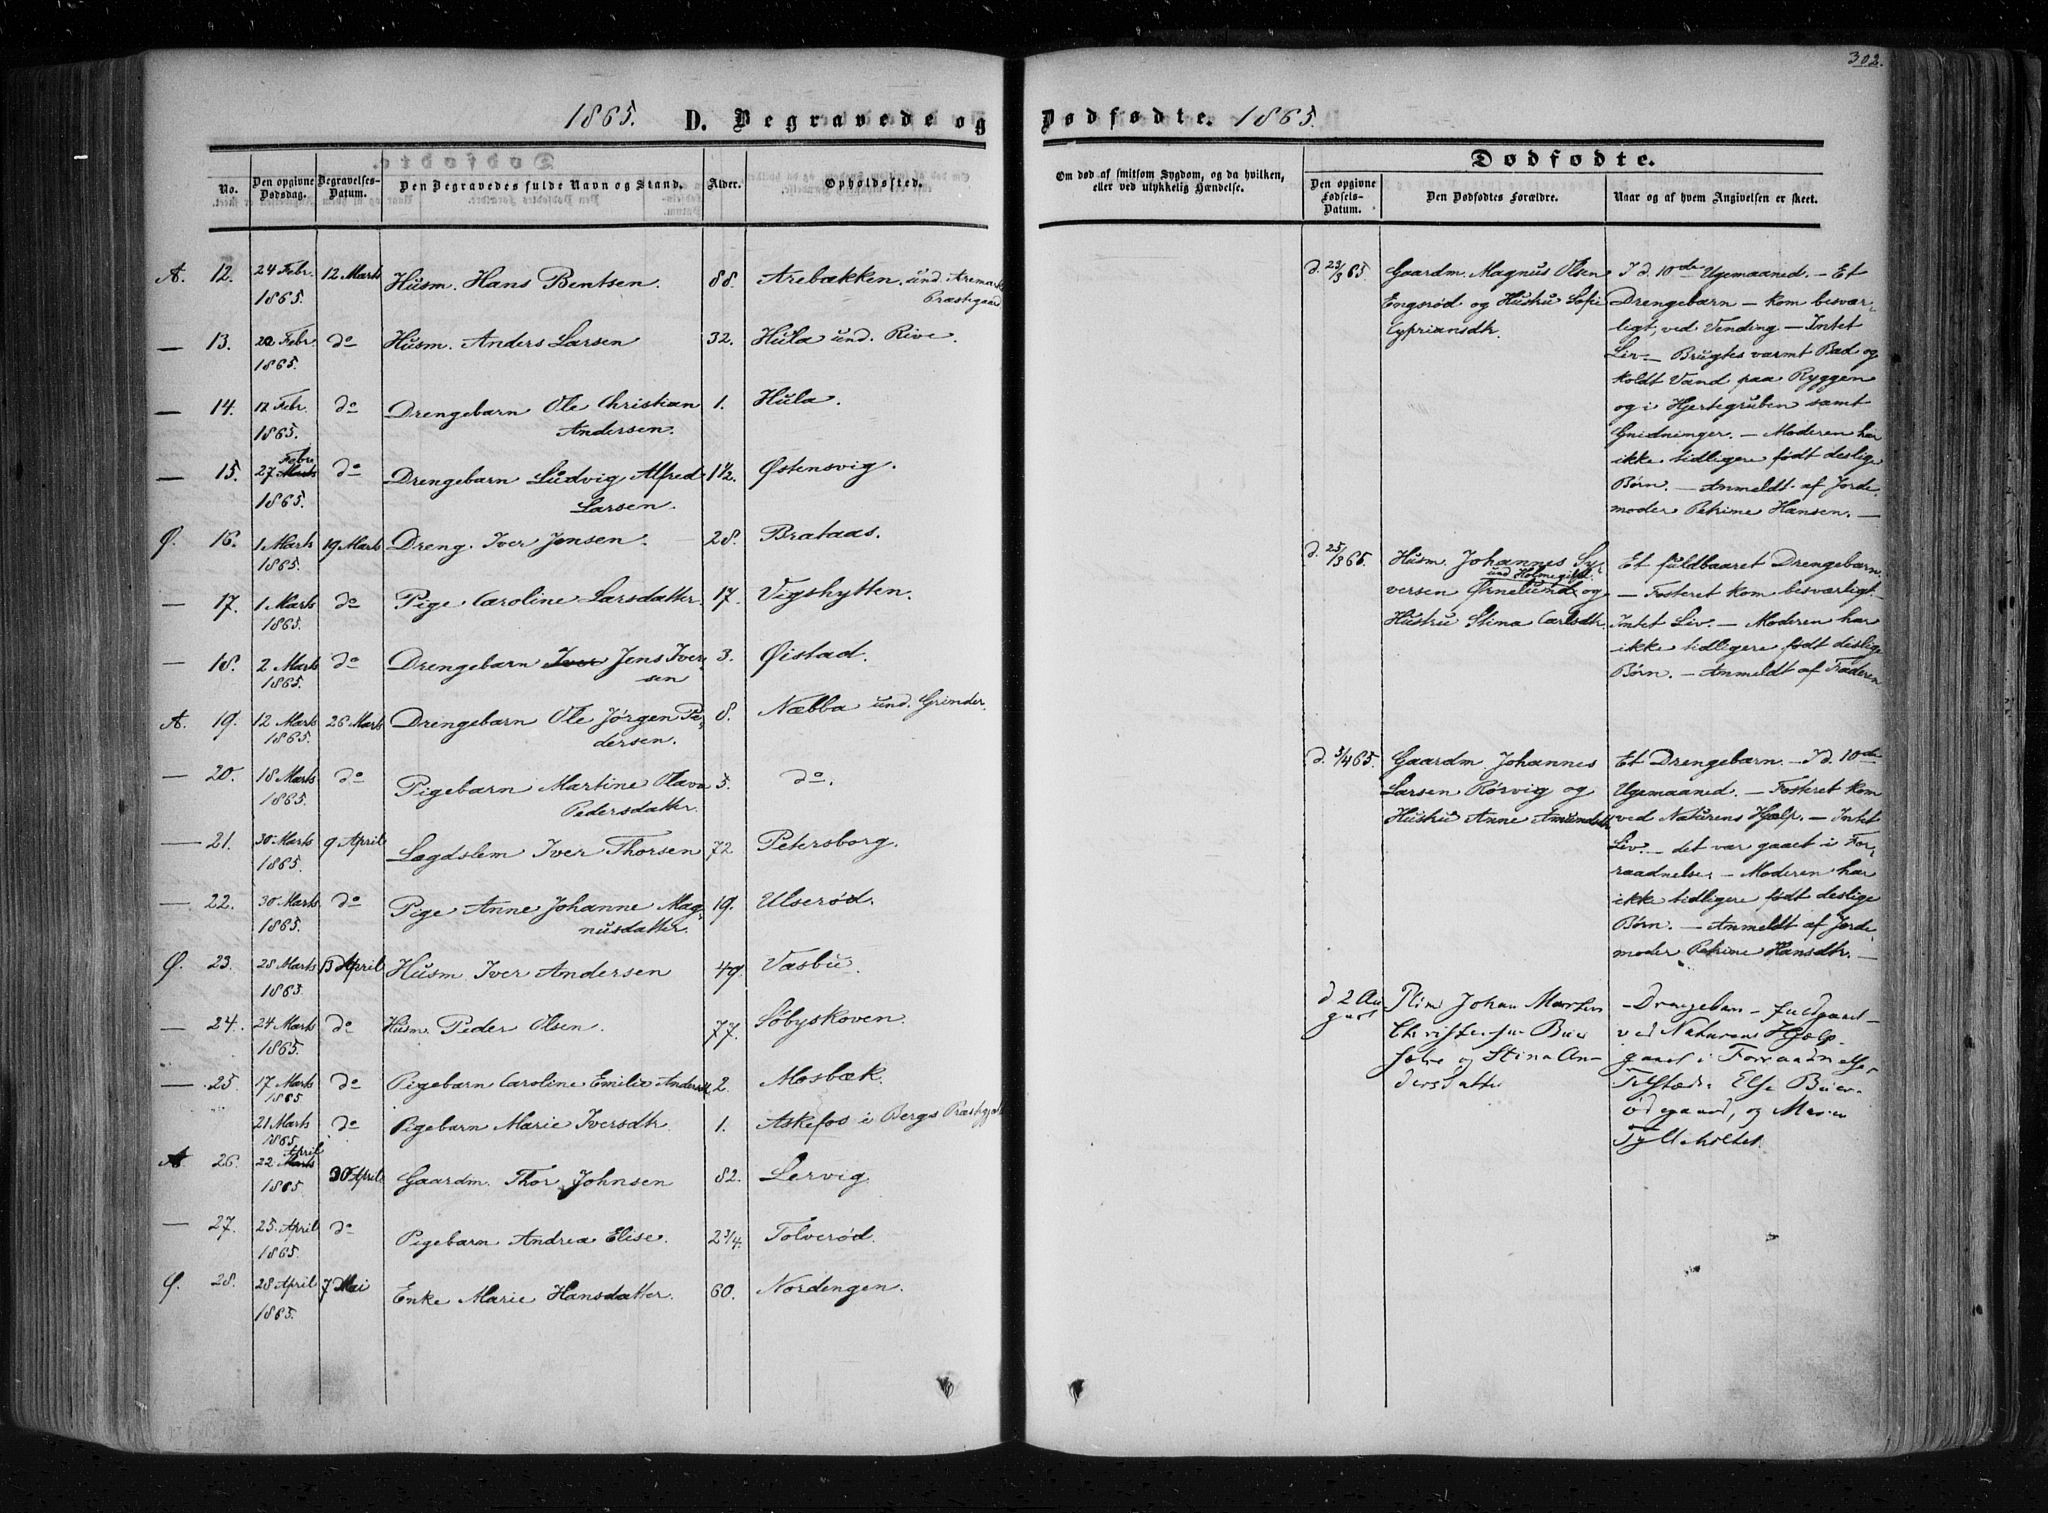 302.
1865. D. Begravede og Dødfødte. 1865.
No. Den opgivne Dødsdag. Begravelses-Datum. Den Begravedes fulde Navn og Stand. Alder. Opholdssted.
A. 12. 24 Febr. 1865. 12 Marts Husm. Hans Bentsen. 88. Arebækken. und. Aremark Præstegaard
— 13. 22 Febr. 1865. do Husm. Anders Larsen 32. Hula und. Rive.
— 14. 17 Febr. 1865. do Drengebarn Ole Christian Andersen. 1. Hula.
— 15. 27 Febr. 1865. do Drengebarn Ludvig Alfred Larsen. 1½. Østensvig.
Ø. 16. 1 Marts 1865. 19 Marts Dreng. Iver Jensen. 28. Brataas.
— 17. 1 Marts 1865. do Pige Caroline Larsdatter. 17. Vigshytten.
— 18. 2 Marts 1865. do Drengebarn Iver Jens Iversen 3. Øistad.
A. 19. 12 Marts 1865. 26 Marts Drengebarn Ole Jørgen Pedersen. 8. Næbba und. Grinder.
— 20. 18 Marts 1865. do Pigebarn Martine Olava Pedersdatter. 5. do.
— 21. 30 Marts 1865. 9 April Lægdslem Iver Thorsen 72 Petersborg.
— 22. 30 Marts 1865. do Pige Anne Johanne Magnusdatter. 19. Ulserød.
Ø. 23. 28 Marts 1865. 17 April Husm. Iver Andersen 49. Vasbu.
— 24. 24 Marts 1865. do Husm. Peder Olsen. 77. Søbyskoven.
— 25. 17 Marts 1865 do Pigebarn Caroline Emilie Andersdt 2. Mosbæk.
21 Marts 1865. do Pigebarn Marie Iversdtr. 1. Askefos i Bergs Præstegjeld
A 26. 22 April 1865 30 April Gaardm. Thor Johnsen 82. Lervig
— 27. 25 April 1865. do Pigebarn Andrea Elise. 2¾. Tolverød.
Ø. 28. 28 April 1865. 7 Mai Enke Marie Hansdatter. 60. Nordengen.
Om død af smitsom Sygdom, og da hvilken, eller ved ulykkelig Hændelse.
Dødfødte.
Den opgivne Fødsels-Datum. Den Dødfødtes Forældre. Naar og af hvem Angivelsen er skeet.
d. 23/3 65. Gaardm. Magnus Olsen
Engsrød og Hustru Sofie
Cypriansdtr.
I d. 10de Ugemaaned. — Et
Drengebarn — kom besvær-
ligt, ved Vending — Intet
Liv — Brugtes varmt Bad og
koldt Vand paa Ryggen
og i Hjertegruben samt
Gnidninger. — Moderen har
ikke tidligere født deslige
Børn. — Anmeldt af Jorde-
moder Petrine Hansen. —
d. 25/3 65. Husm. Johannes Sy-
versen Ørnelund og
und Holmegild
Hustru Stina Carlsdtr.
Et fuldbaaret Drengebarn.
— Fosteret kom besværligt.
Intet Liv. — Moderen har
ikke tidligere født deslige
Børn. — Anmeldt af Faderen
d. 5/4 65. Gaardm. Johannes
Larsen Rørvig og
Hustru Anne Amundsdtr
Et Drengebarn. — I d. 10de
Ugemaaned. — Fosteret kom
ved Naturens Hjelp. — Intet
Liv. — det var gaaet i For-
raadnelse, — Moderen har
ikke tidligere født deslige
Børn. — Anmeldt af Jorde-
moder Petrine Hansdtr. —
d 2 Au
gust
Johan Martin
og Stina An-
dersdatter
Drengebarn — fuldgaaet —
ved Naturens Hjælp
gaaet i Forraadnelse.
Tilstæde Else
Ødegaard, og Maren
Tyllitholtet.